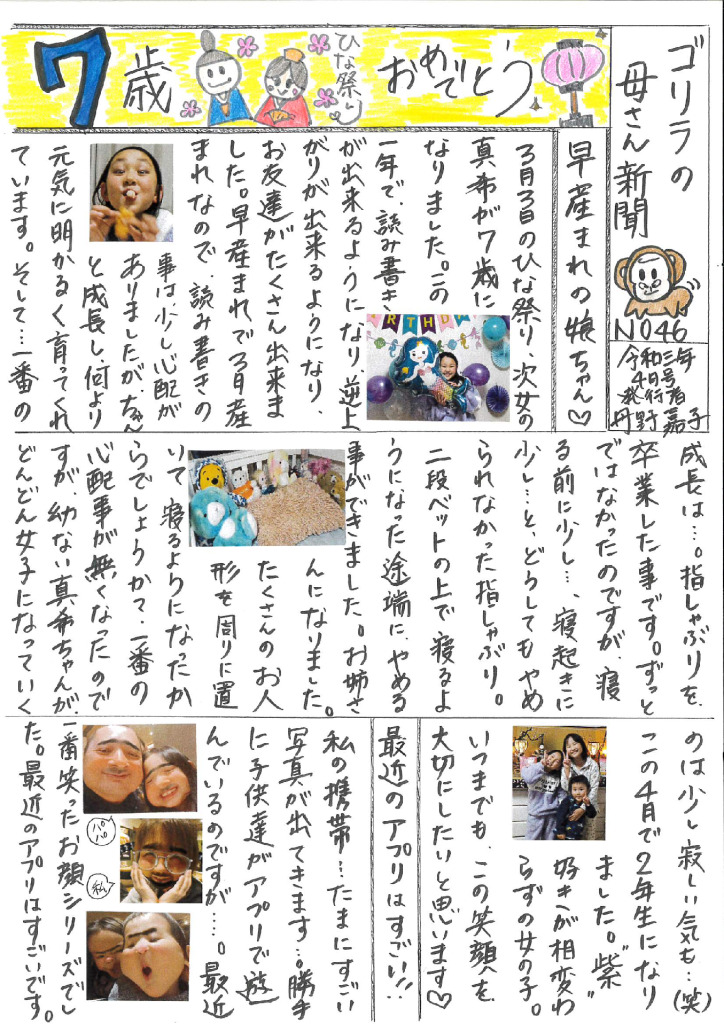 ゴリラの
母さん新聞
NO46
令和三年
4月号
発行者
丹野嘉子
7歳
ひな祭り
おめでとう
早産まれの娘ちゃん♡
3月3日のひな祭り、次女の
真希が7歳に
なりました。この
一年で、読み書き
が出来るようになり、逆上
がりが出来るようになり、
お友達がたくさん出来ま
した。早産まれで3月産
まれなので、読み書きの
事は、少し心配が
ありましたが、ちゃん
と成長し、何より
元気に明かるく育ってくれ
ています。そして…一番の
成長は…。指しゃぶりを、
卒業した事です。ずっと
ではなかったのですが、寝
る前に少し…、寝起きに
少し…と、どうしてもやめ
られなかった指しゃぶり。
二段ベットの上で寝るよ
うになった途端に、やめる
事ができました。お姉さ
んになりました。
たくさんのお人
形を周りに置
いて寝るようになったか
らでしょうか?一番の
心配事が無くなったので
すが、幼ない真希ちゃんが、
どんどん女子になっていく
のは少し寂しい気も…(笑)
この4月で2年生になり
ました。"紫"
好きが相変わ
らずの女の子。
いつまでも、この笑顔を
大切にしたいと思います♡
最近のアプリはすごい!!
私の携帯…たまにすごい
写真が出てきます…。勝手
に子供達がアプリで遊
んでいるのですが…。最近
パパ
私
一番笑ったお顔シリーズでし
た。最近のアプリはすごいです。